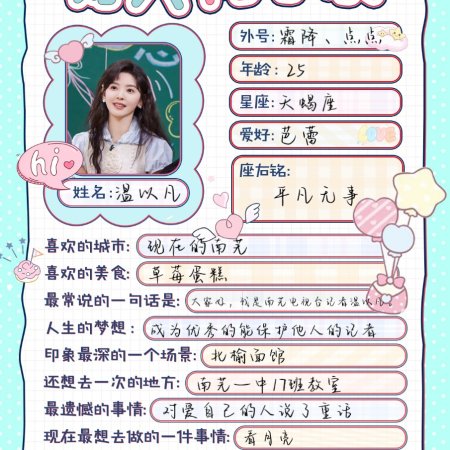 外号: 霜降、点点
年龄: 25
星座: 天蝎座
爱好: 芭蕾
座右铭:
平凡无事
hi
姓名: 温以凡
LOVE
喜欢的城市: 现在的南芜
喜欢的美食: 草莓蛋糕
最常说的一句话是: 大家好，我是南芜电视台记者温以凡。
人生的梦想: 成为优秀的能保护他人的记者
印象最深的一个场景: 北榆面馆
还想去一次的地方: 南芜一中17班教室
最遗憾的事情: 对爱自己的人说了重话
现在最想去做的一件事情: 看月亮